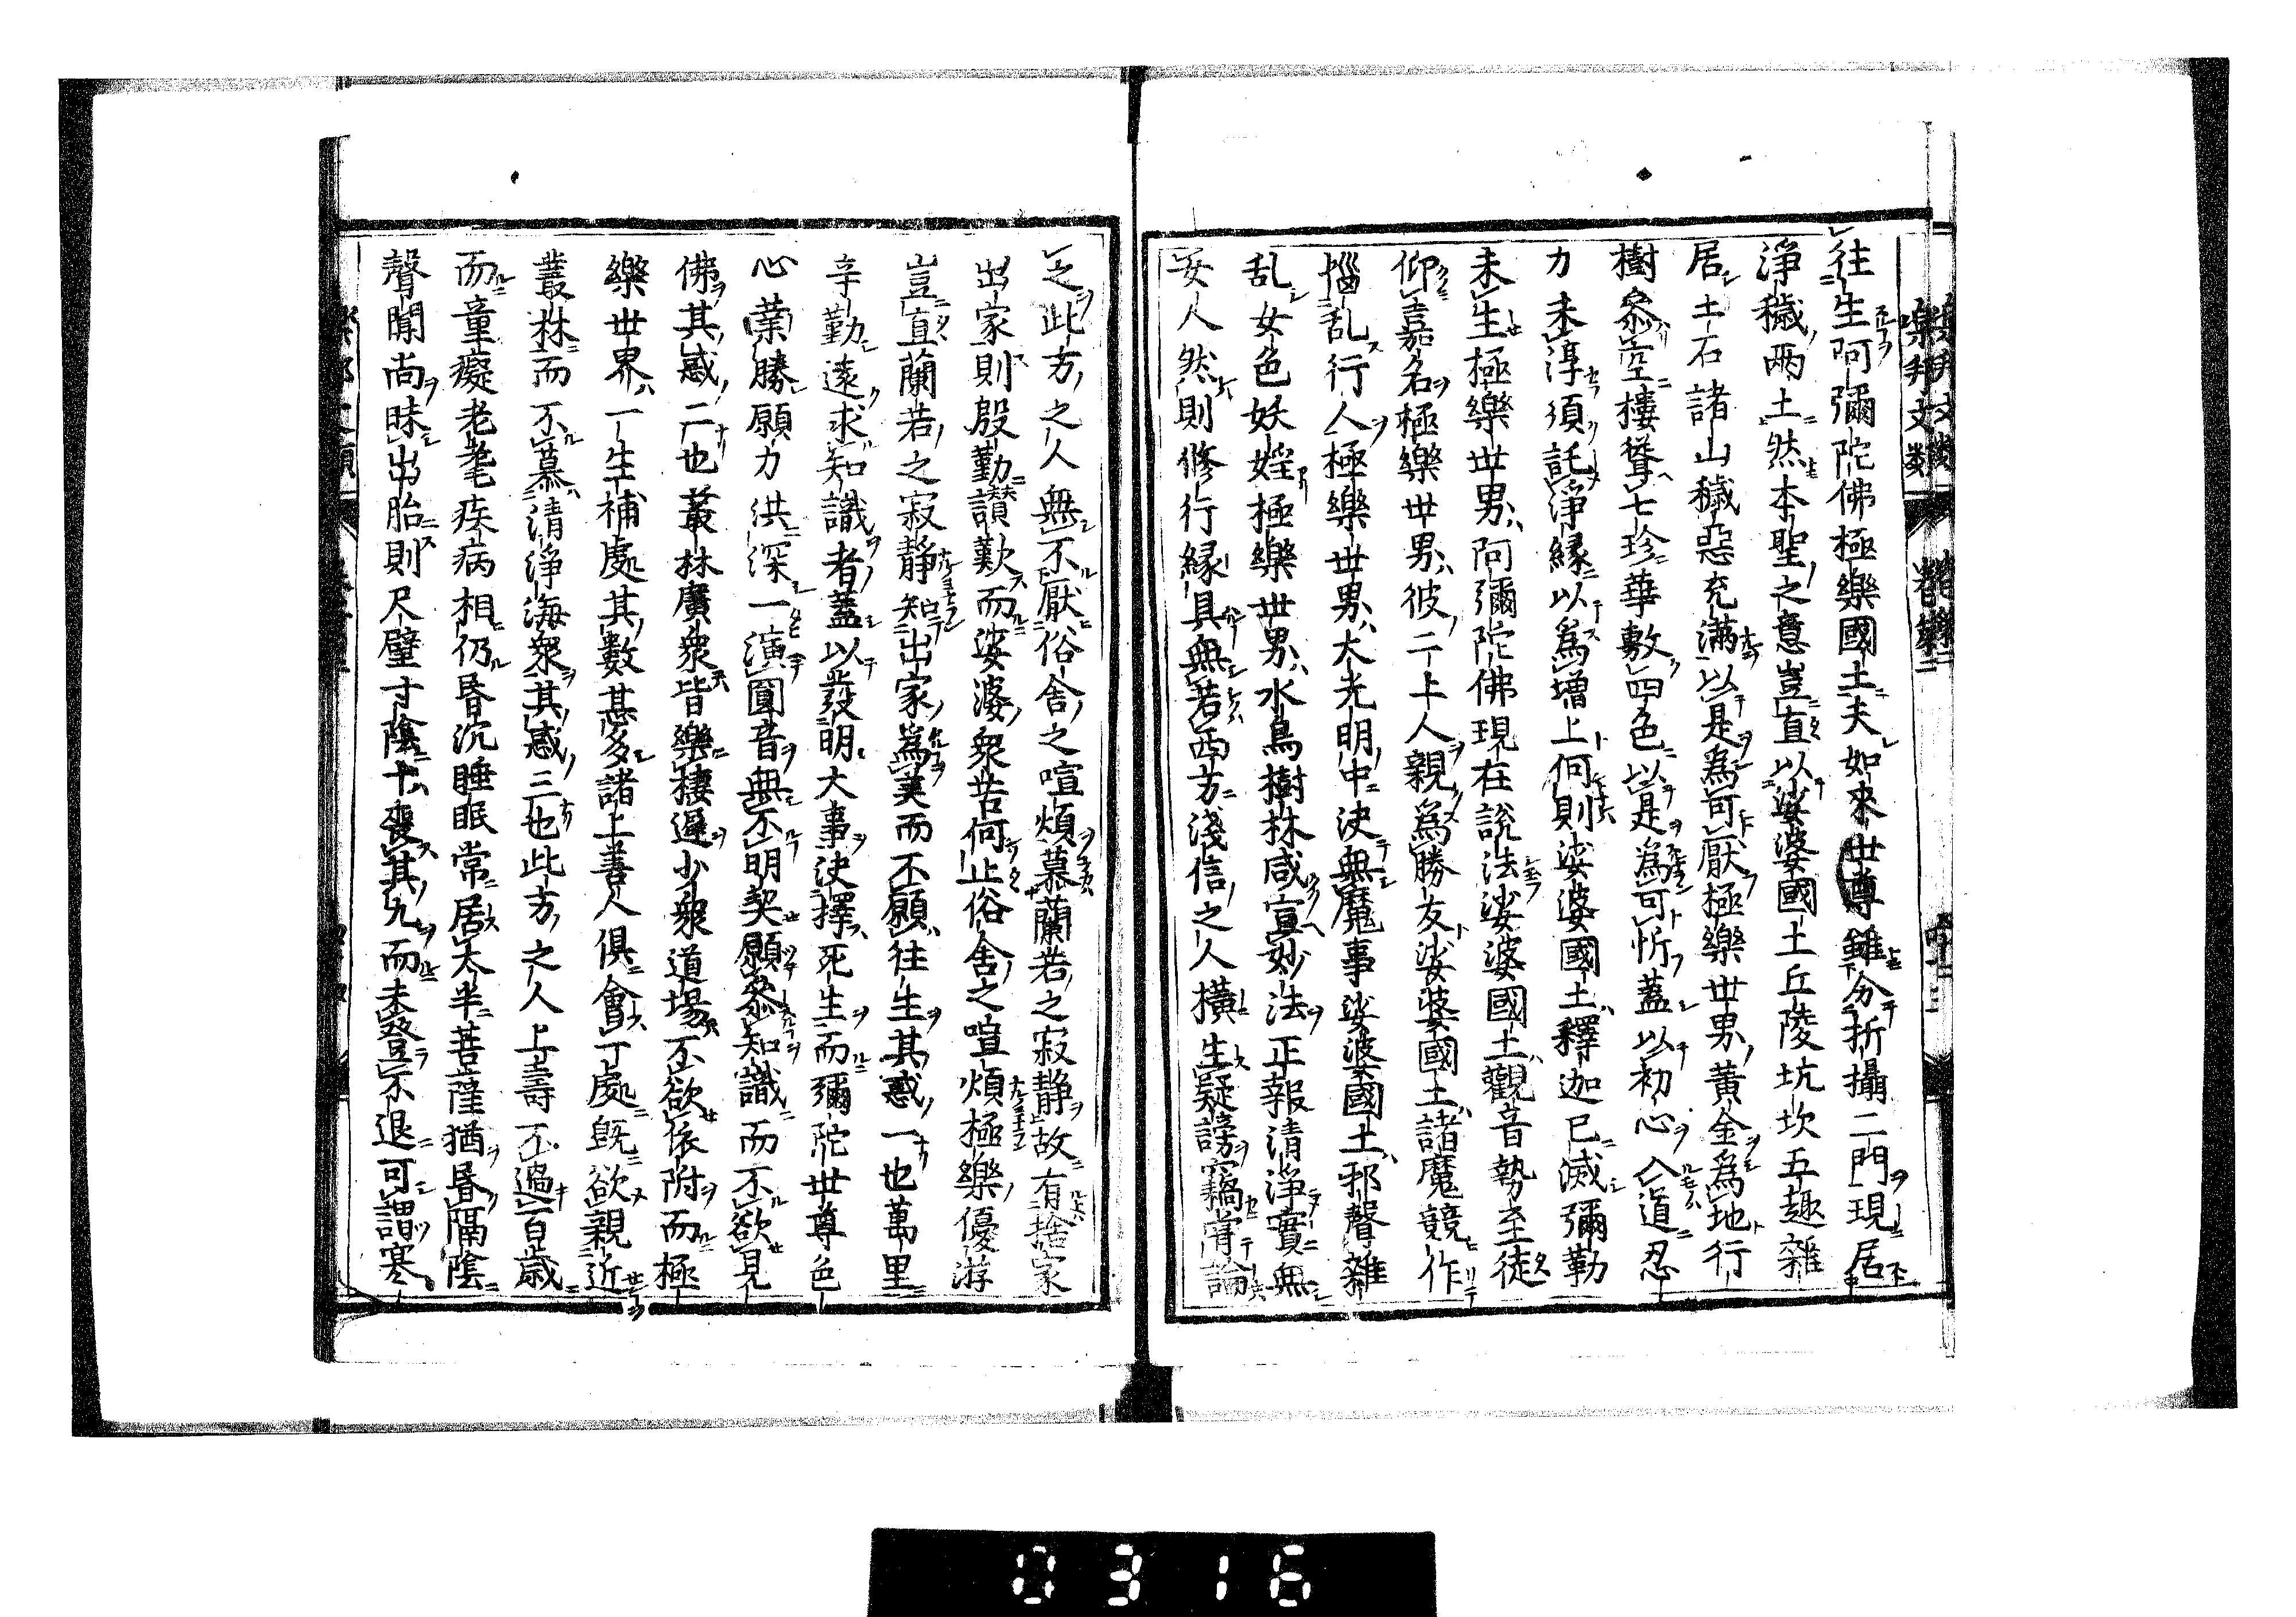 往生阿彌陀佛極樂國土夫如來世尊雖分折攝二門現居
淨穢兩土然本聖之意豈直以娑婆國土丘陵坑坎五趣雜
居土石諸山穢惡充滿以是爲可厭極樂世界黃金爲地行
樹參空樓聳七珍華敷四色以是爲可忻蓋以初心入道忍
力未淳須託淨緣以爲增上何則娑婆國土釋迦已滅彌勒
未生極樂世界阿彌陀佛現在說法娑婆國土觀音勢至徒
仰嘉名極樂世界彼二上人親爲勝友娑婆國土諸魔競作
惱乱行人極樂世界大光明中決無魔事娑婆國土邪聲雜
乱女色妖婬極樂世界水鳥樹林咸宣妙法正報清淨實無
女人然則修行緣具無若西方淺信之人橫生疑謗竊甞論
之此方之人無不厭俗舍之喧煩慕蘭若之寂靜故有捨家
出家則殷勤讃歎而娑婆衆苦何止俗舍之喧煩極樂優游
豈直蘭若之寂靜知出家爲美而不願往生其惑一也萬里
辛勤遠求知識者蓋以發明大事決擇死生而彌陀世尊色
心業勝願力洪深一演圓音無不明契願參知識而不欲見
佛其惑二也叢林廣衆皆樂棲遲少衆道場不欲依附而極
樂世界一生補處其數甚多諸上善人俱會一處既欲親近
叢林而不慕清淨海衆其惑三也此方之人上壽不過百歲
而童癡老耄疾病相仍昏沉睡眠常居太半菩薩猶昏隔陰
聲聞尚昧出胎則尺璧寸陰十喪其九而未登不退可謂寒
樂邦文類
0316